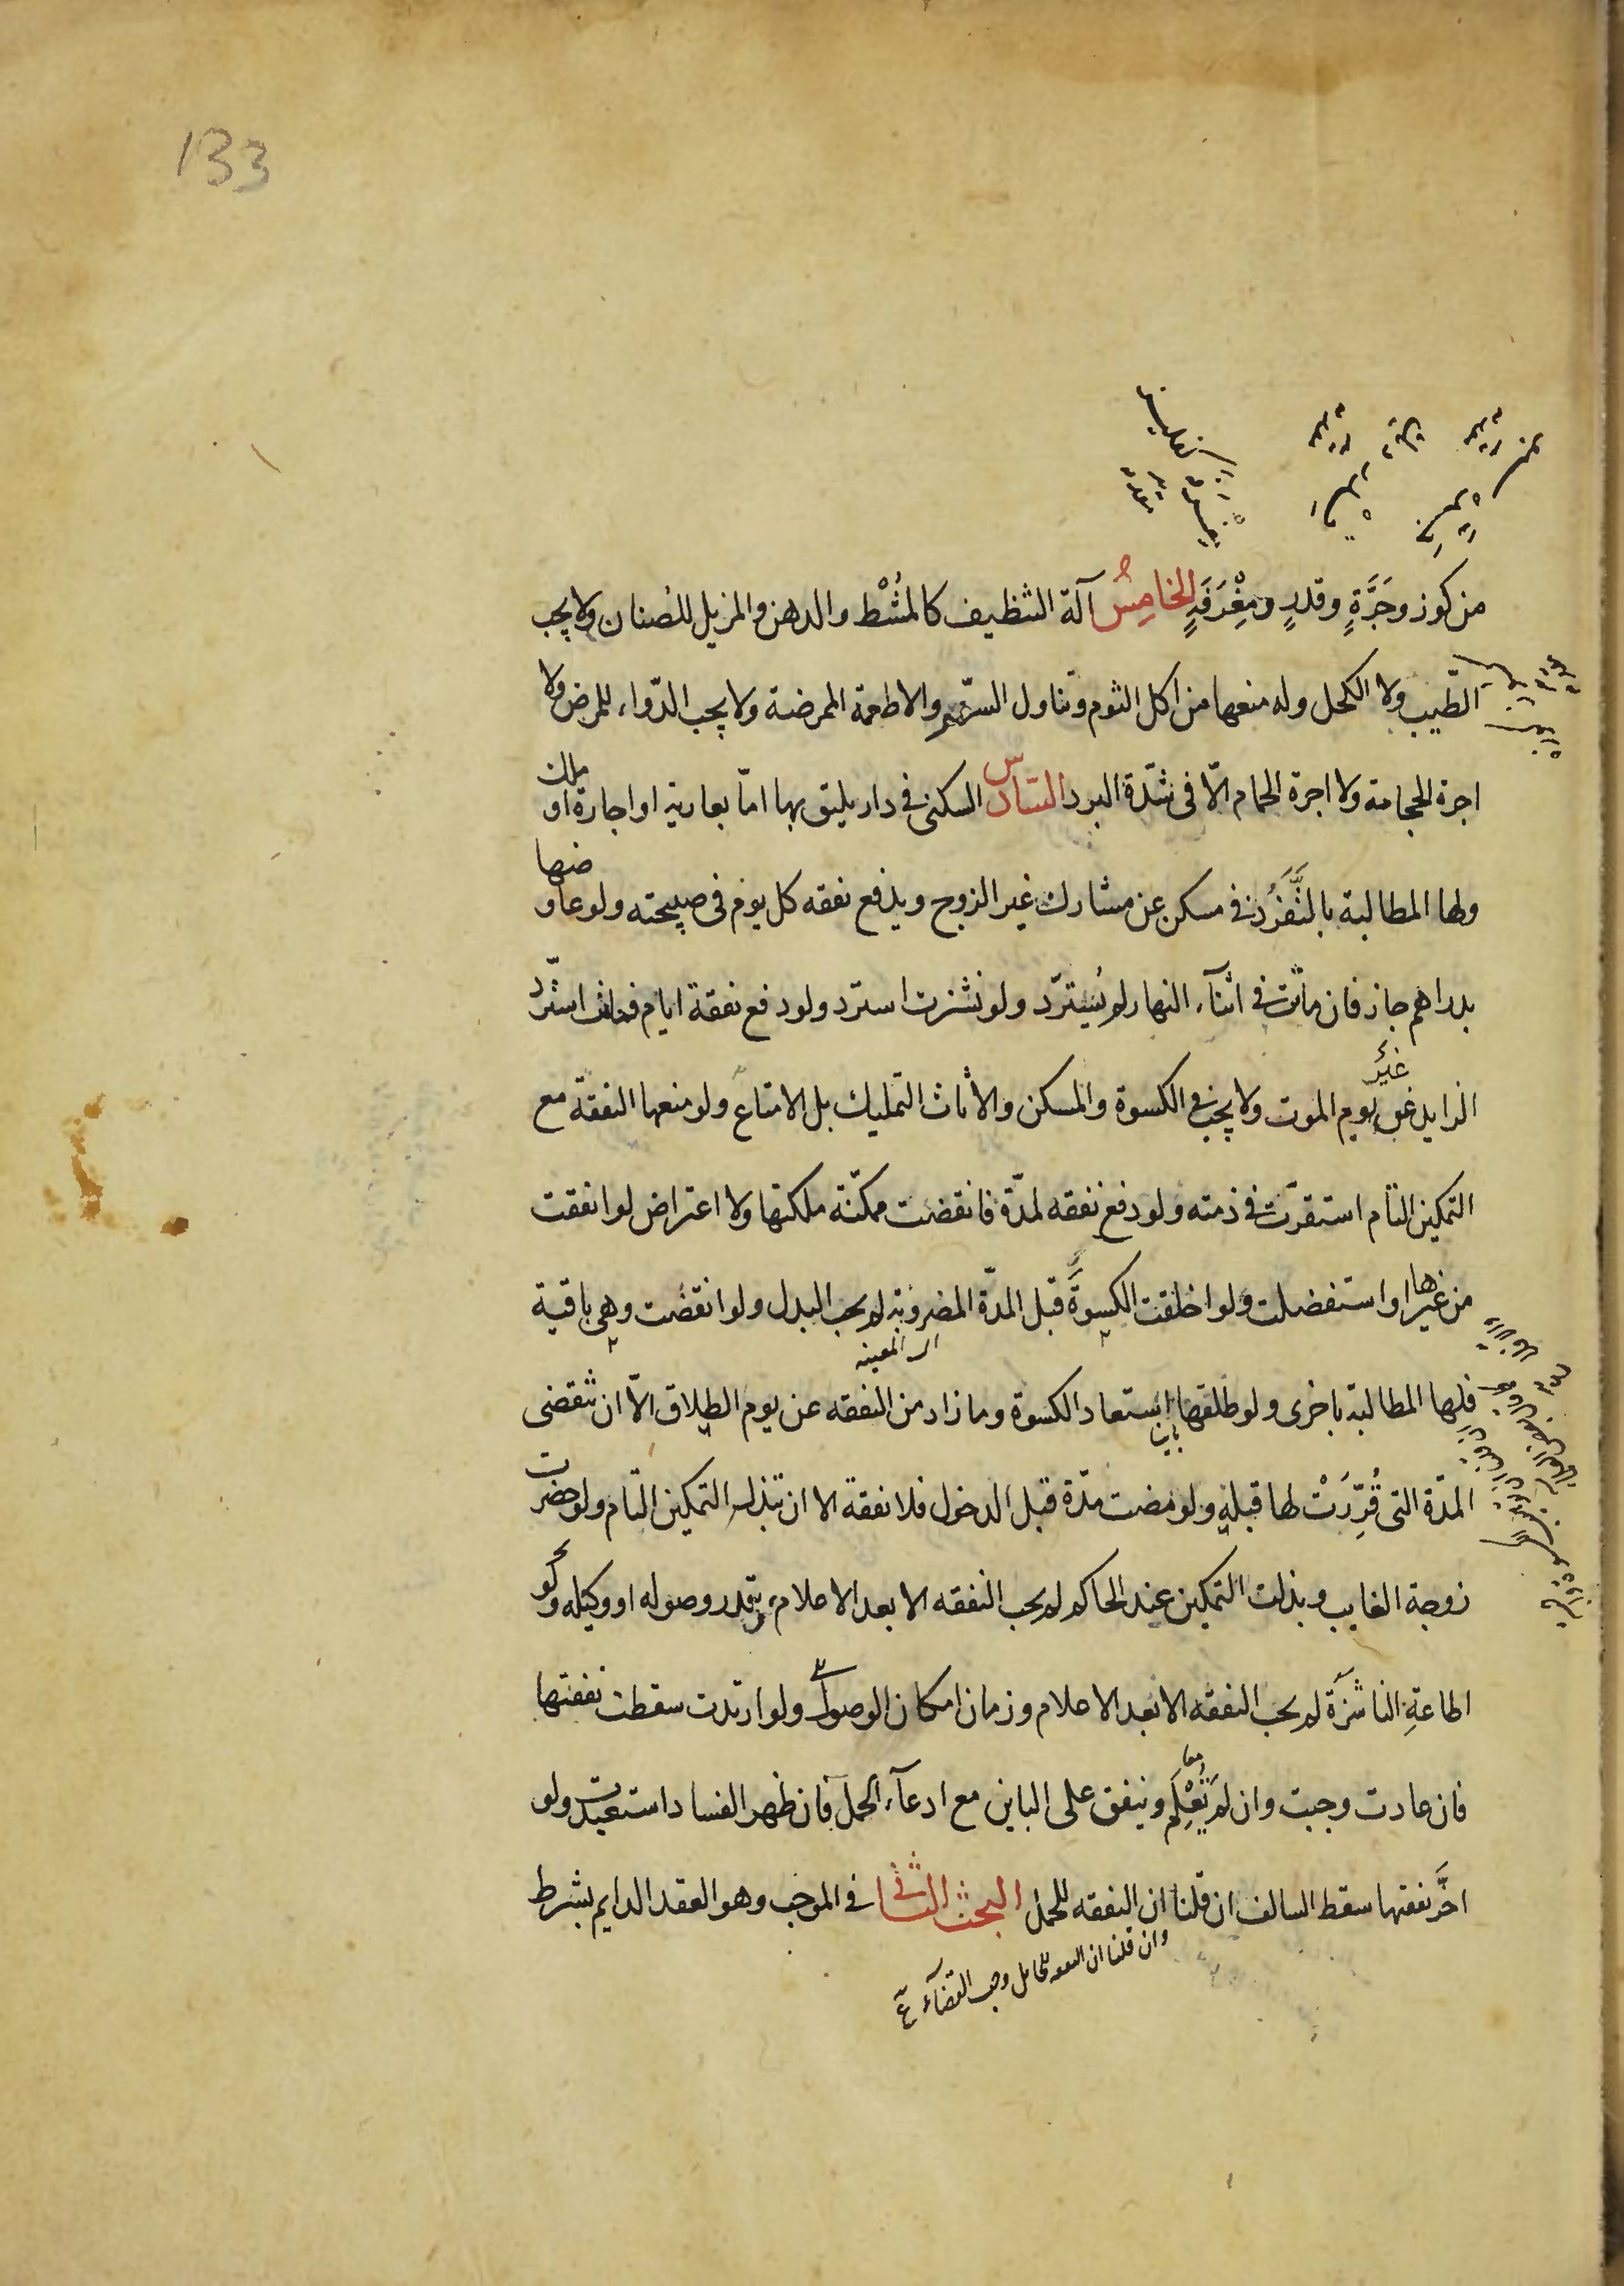 133
من كوز وجَرَّةٍ وقدرٍ ومِغْرَفَةٍ الخامِسُ آلة التنظيف كالمُشْط والدهن والمزيل للصُنان ولا يجب
الطّيب ولا الكحل وله منعها من اكل الثوم وتناول السّم والاطعمة الممرضة ولا يجب الدّواء للمرض ولا
اجرة الحجامة ولا اجرة الحمام الّا فى شدّة البرد السّادس السكنى فى دار يليق بها امّا بعارية او اجارة او ملك
ولها المطالبة بالتَّفَرُّد فى مسكن عن مشارك غير الزوج ويدفع نفقه كل يوم فى صبيحته ولو عاوضها
بدراهم جاز فان ماتت فى اثنآء النهار لم يُسترّد ولو نشزت استرد ولو دفع نفقة ايام فماتت استرّد
الزايد عن غير يوم الموت ولا يجب فى الكسوة والمسكن والاثاث التمليك بل الامتاع ولو منعها النفقة مع
التمكين التام استقرّت فى ذمته ولو دفع نفقه لمدّة فانقضت ممكنّة ملكتها ولا اعتراض لو انفقت
من غيرها او استفضلت ولو اخلقت الكسوةَ قبل المدّة المضروبة لم يجب البدل ولو انقضت وهى باقية
اى المعينه
فلها المطالبة باخرى ولو طلقها استعاد الكسوة وما زاد من النفقه عن يوم الطلاق الّا ان تنقضى
باين
المدّة التى قُرِّرَتْ لها قبله ولو مضت مدّة قبل الدخول فلا نفقة الا ان تبذل التمكين التام ولو حضرت
زوجة الغايب وبذلت التمكين عند الحاكم لم يجب النفقه الا بعد الاعلام وتقدر وصوله او وكيله ولو
اطاعةِ الناشزَة لم يجب النفقه الا بعد الاعلام وزمان امكان الوصول ولو ارتدت سقطت نفقتها
فان عادت وجبت وان لم يَعْلَم وينفق على الباين مع ادعآء الحمل فان ظهر الفساد استعيدت ولو
اخَّر نفقتها سقط السالف ان قلنا ان النفقه للحمل البحث الثانى فى الموجب وهو العقد الدايم بشرط
وان قلنا ان النفقه للحامل وجب القضآء ع